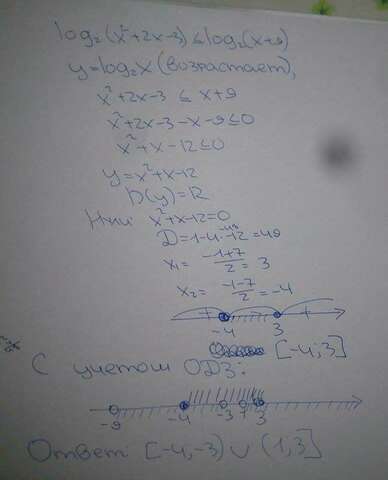 log₂(x²+2x-3) ≤ log₂(x+9)
y=log₂x (возрастает),
x²+2x-3 ≤ x+9
x²+2x-3-x-9≤0
x²+x-12≤0
y=x²+x-12
D(y)=R
Нули: x²+x-12=0
D=1-4·-12=49
x₁= (-1+7)/2 = 3
x₂= (-1-7)/2 = -4
+ - +
-4 3
[-4;3]
С учетом ОДЗ:
-9 -4 -3 1 3
Ответ: [-4,-3) ∪ (1,3]